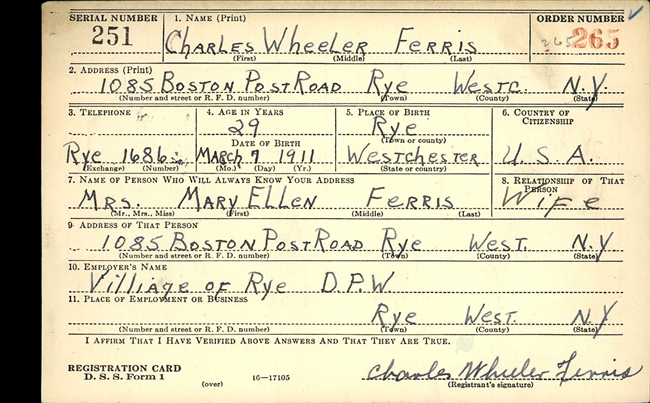 SERIAL NUMBER 1. NAME (Print) ORDER NUMBER
251 CHARLES WHEELER FERRIS 265 265
(First) (Middle) (Last)
2. ADDRESS (Print)
1085 BOSTON POST ROAD RYE WESTC. N.Y.
(Number and street or R. F. D. number) (Town) (County) (State)
3. TELEPHONE 4. AGE IN YEARS 5. PLACE OF BIRTH 6. COUNTRY OF CITIZENSHIP
29 RYE
DATE OF BIRTH (Town or county)
RYE 1686 MARCH 7 1911 WESTCHESTER U.S.A.
(Exchange) (Number) (Mo.) (Day) (Yr.) (State or country)
7. NAME OF PERSON WHO WILL ALWAYS KNOW YOUR ADDRESS 8. RELATIONSHIP OF THAT PERSON
MRS. MARY ELLEN FERRIS WIFE
(Mr., Mrs., Miss) (First) (Middle) (Last)
9. ADDRESS OF THAT PERSON
1085 BOSTON POST ROAD RYE WEST. N.Y
(Number and street or R. F. D. number) (Town) (County) (State)
10. EMPLOYER'S NAME
Villiage of Rye D.P.W
11. PLACE OF EMPLOYMENT OR BUSINESS
RYE WEST. N.Y
(Number and street or R. F. D. number) (Town) (County) (State)
I AFFIRM THAT I HAVE VERIFIED ABOVE ANSWERS AND THAT THEY ARE TRUE.
REGISTRATION CARD
D. S. S. Form 1 (over) 16—17105
Charles Wheeler Ferris
(Registrant's signature)